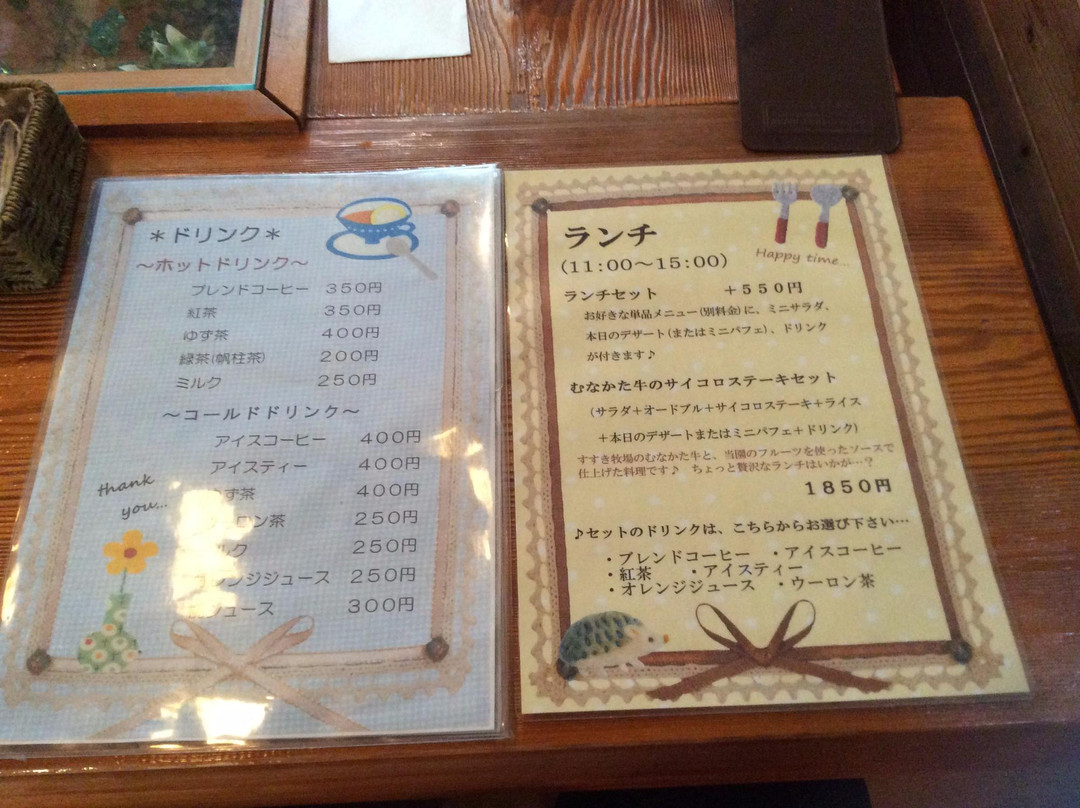 ＊ドリンク＊
～ホットドリンク～
ブレンドコーヒー 350円
紅茶 350円
ゆず茶 400円
緑茶(帆柱茶) 200円
ミルク 250円
～コールドドリンク～
アイスコーヒー 400円
アイスティー 400円
ず茶 400円
ロン茶 250円
ルク 250円
レンジジュース 250円
ジュース 300円
thank
you...
ランチ
(11:00～15:00)
Happy time...
ランチセット ＋５５０円
お好きな単品メニュー(別料金)に、ミニサラダ、
本日のデザート(またはミニパフェ)、ドリンク
が付きます♪
むなかた牛のサイコロステーキセット
(サラダ＋オードブル＋サイコロステーキ＋ライス
＋本日のデザートまたはミニパフェ＋ドリンク)
すすき牧場のむなかた牛と、当園のフルーツを使ったソースで
仕上げた料理です♪ ちょっと贅沢なランチはいかが…？
１８５０円
♪セットのドリンクは、こちらからお選び下さい…
・ブレンドコーヒー ・アイスコーヒー
・紅茶 ・アイスティー
・オレンジジュース ・ウーロン茶